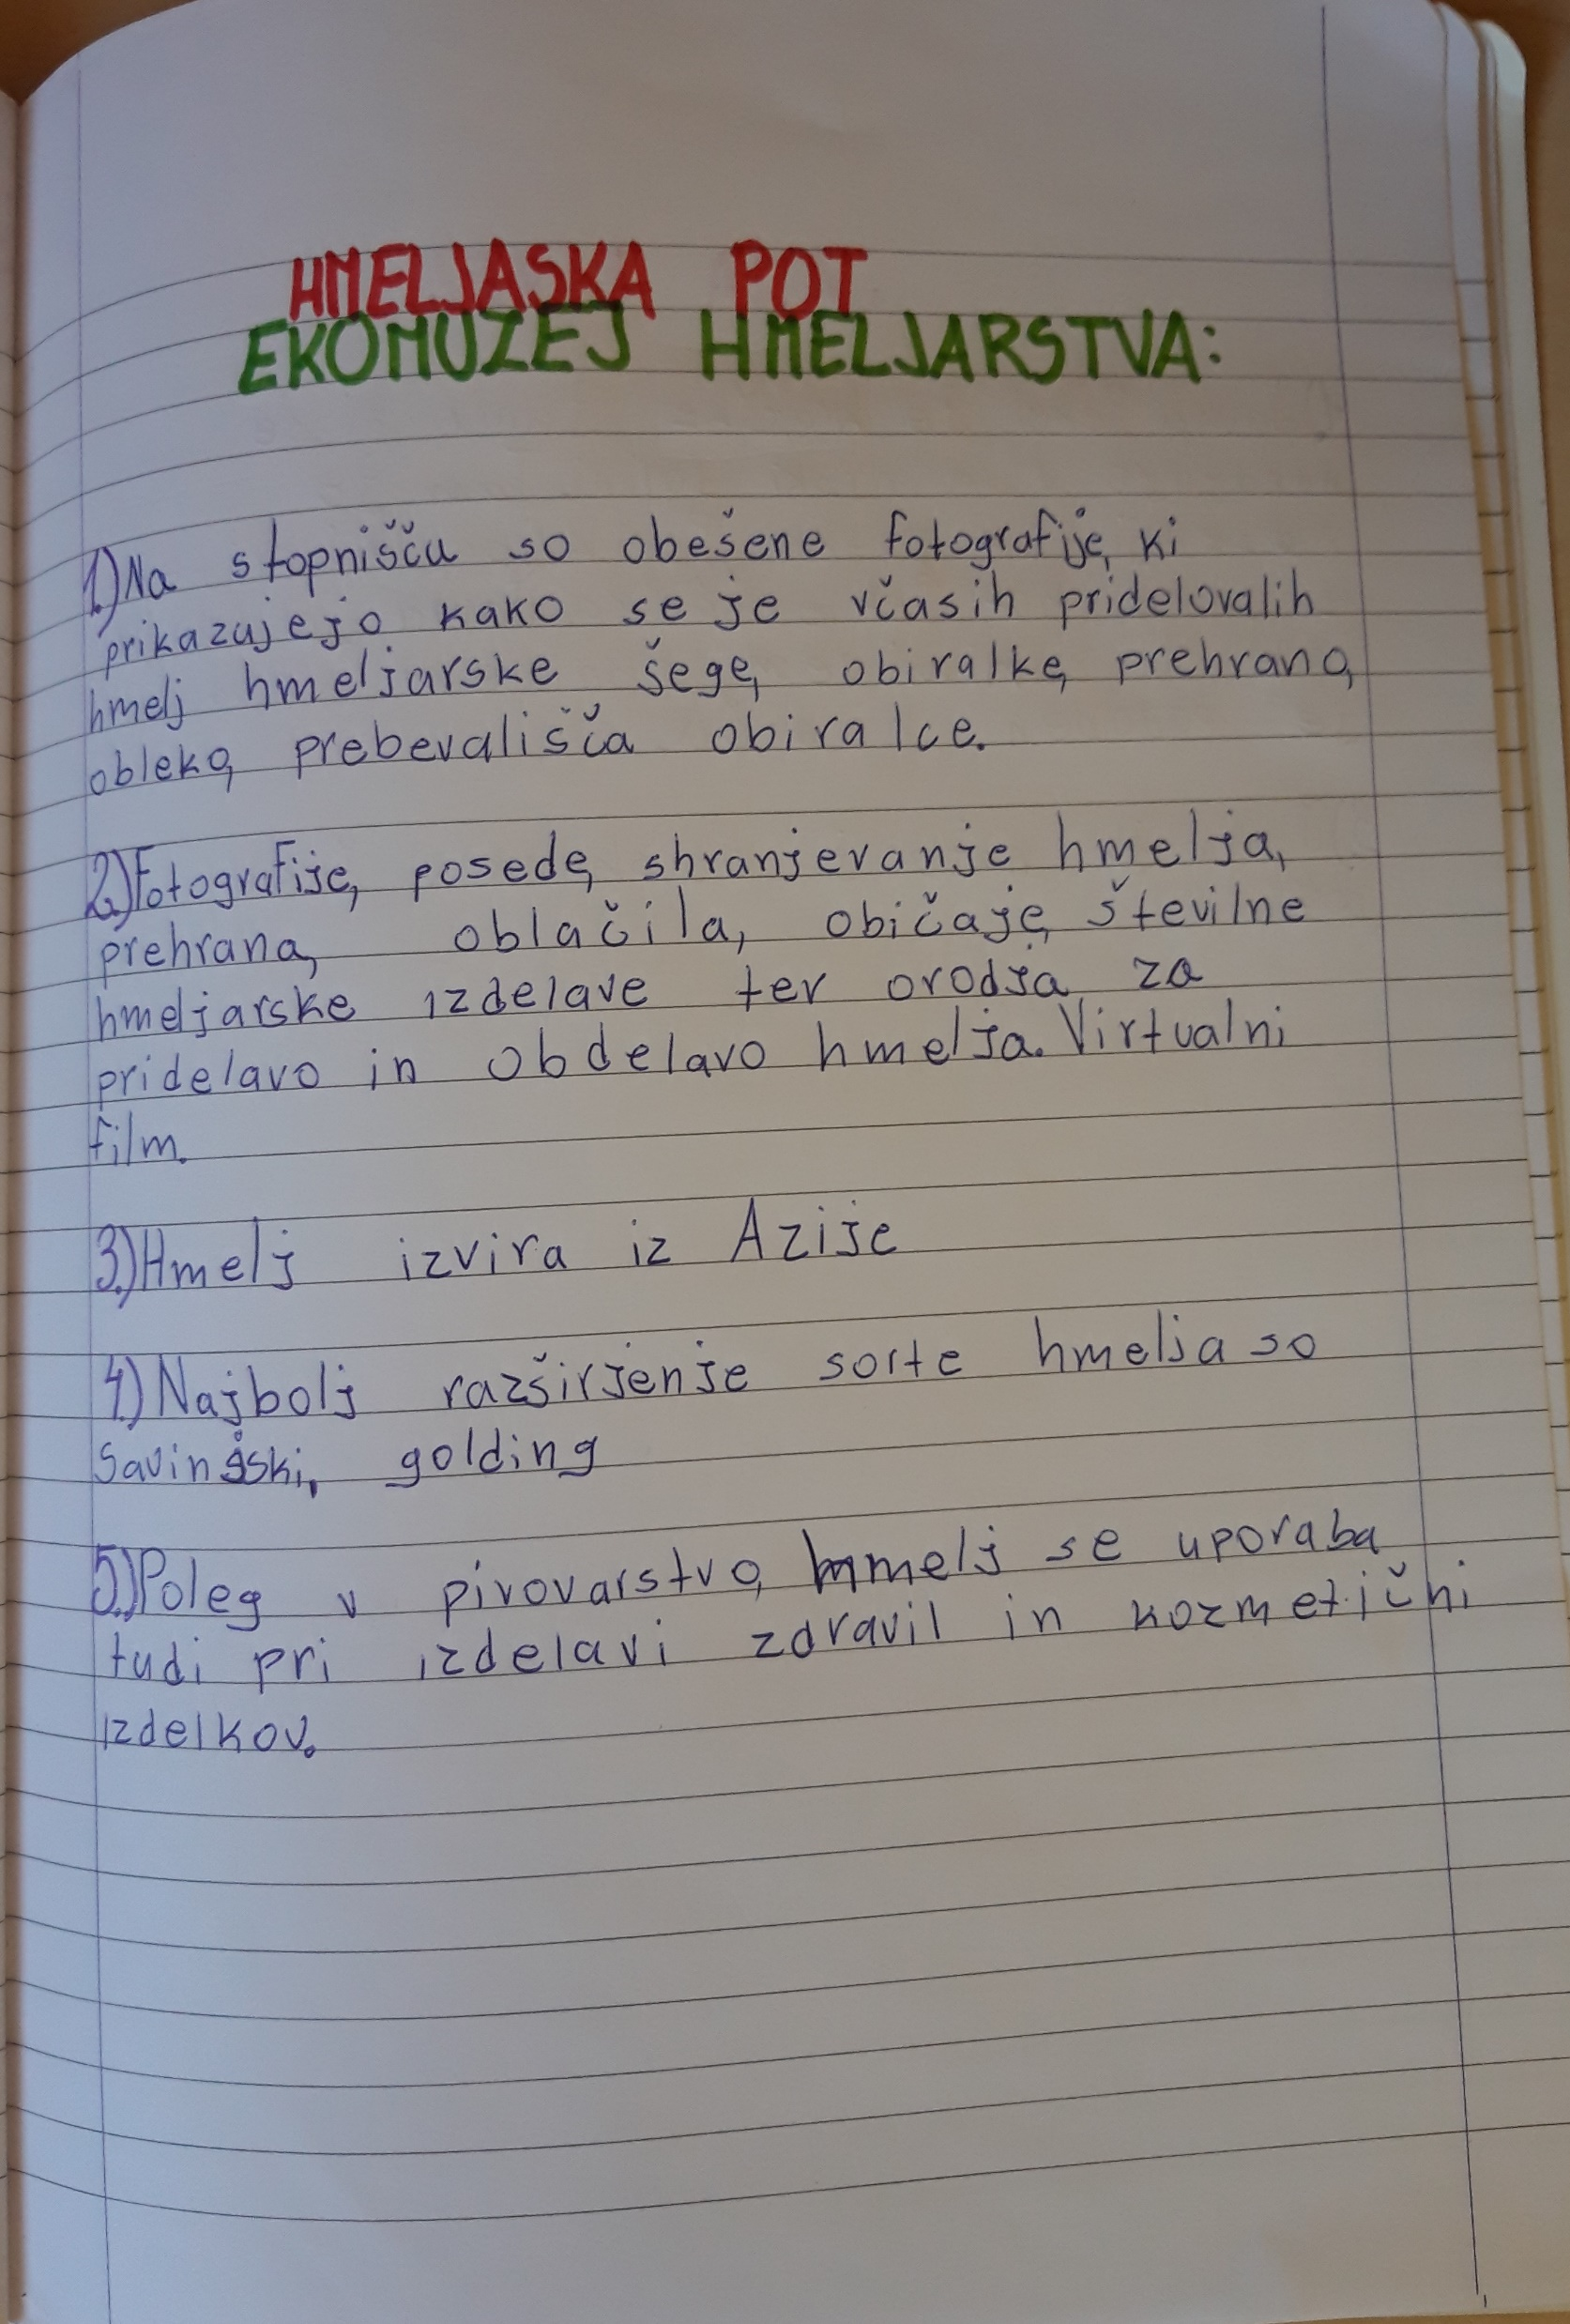 HMELJASKA POT
EKOMUZEJ HMELJARSTVA:
1.) Na stopnišču so obešene fotografije, ki
prikazujejo kako se je včasih pridelovalih
hmelj hmeljarske šege, obiralke, prehrano,
obleko, prebevališča obiralce.
2.) Fotografije, posede, shranjevanje hmelja,
prehrana, oblačila, običaje, številne
hmeljarske izdelave ter orodja za
pridelavo in obdelavo hmelja. Virtualni
film.
3.) Hmelj izvira iz Azije
4.) Najbolj razširjenje sorte hmelja so
Savinjski, golding
5.) Poleg v pivovarstvo, hmelj se uporaba
tudi pri izdelavi zdravil in kozmetični
izdelkov.